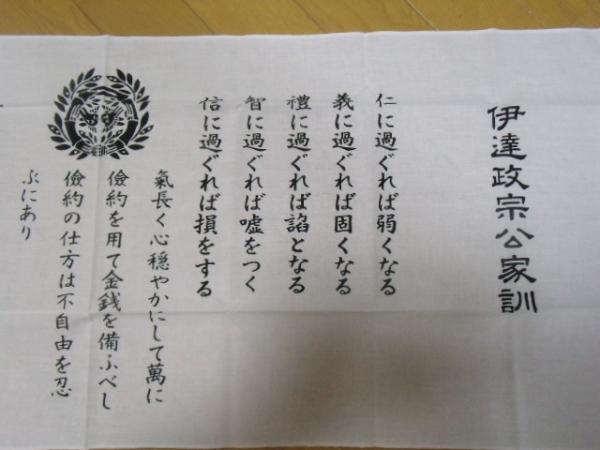 伊達政宗公家訓
仁に過ぐれば弱くなる
義に過ぐれば固くなる
禮に過ぐれば諂となる
智に過ぐれば嘘をつく
信に過ぐれば損をする
氣長く心穏やかにして萬に
儉約を用て金銭を備ふべし
儉約の仕方は不自由を忍
ぶにあり